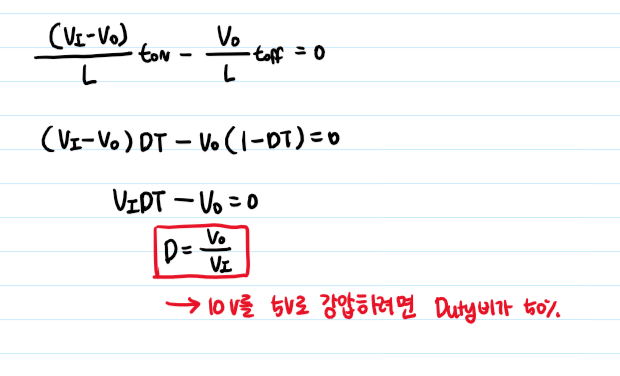 (V_I-V_o)/L t_ON - V_o/L t_off = 0
(V_I-V_o) DT - V_o (1-DT) = 0
V_I DT - V_o = 0
D = V_o/V_I
→ 10V를 5V로 강압하려면 Duty비가 50%.